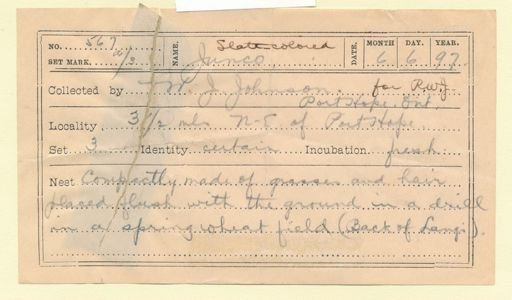 Slate-colored
NO. 567 NAME. Junco DATE. MONTH DAY. YEAR.
SET MARK. 2/3 6 6 97
Collected by W. J. Johnson for R.W.J.
Port Hope, Ont.
Locality, 3 1/2 mls N-E of Port Hope
Set 3 Identity certain Incubation fresh
Nest Compactly made of grasses and hair
placed flush with the ground in a drill
in a spring wheat field (Back of Langs).